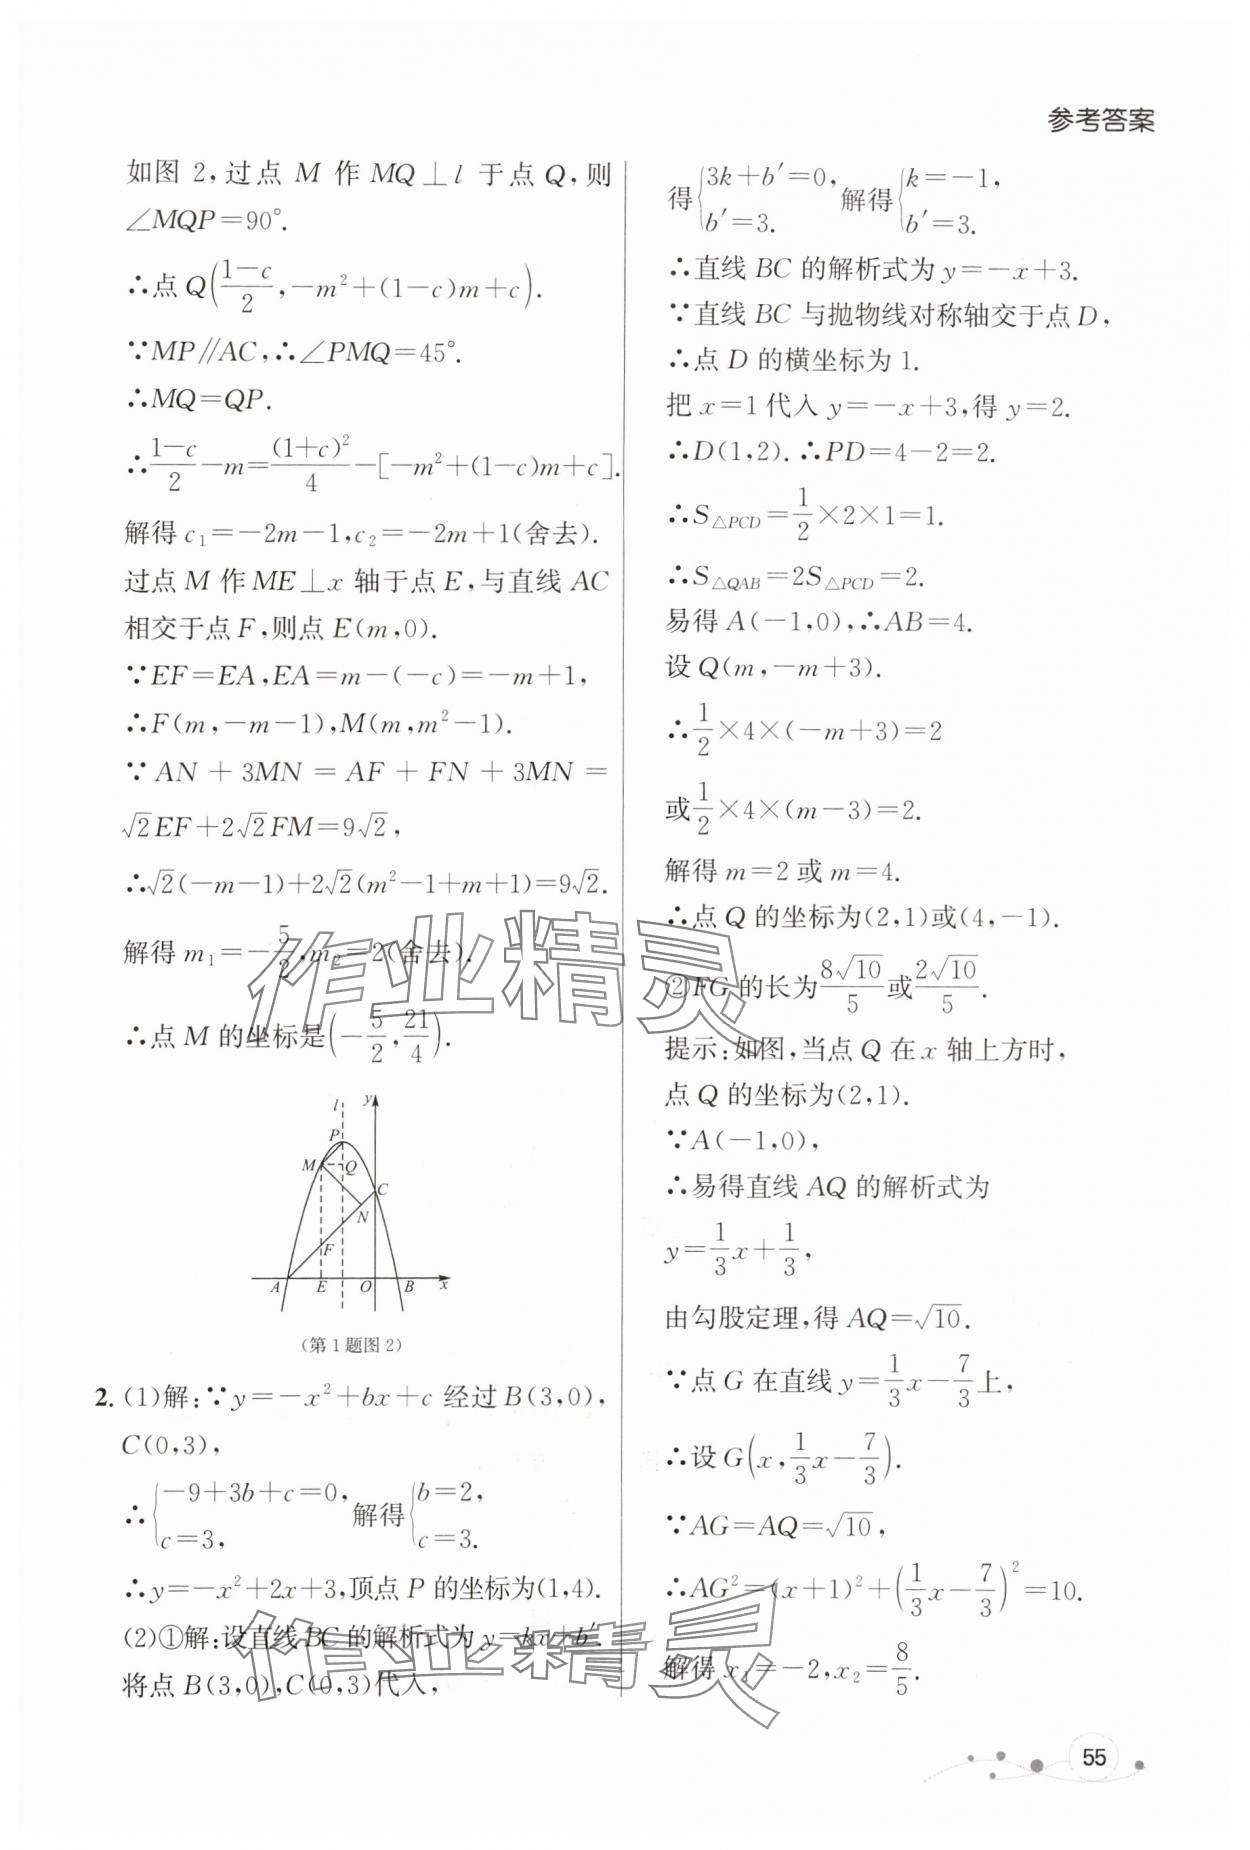 参考答案
如图 2,过点 M 作 MQ⊥l 于点 Q,则
∠MQP=90°.
∴点 Q((1-c)/2,-m²+(1-c)m+c).
∵MP∥AC,∴∠PMQ=45°.
∴MQ=QP.
∴(1-c)/2-m=(1+c)²/4-[-m²+(1-c)m+c].
解得 c₁=-2m-1,c₂=-2m+1(舍去).
过点 M 作 ME⊥x 轴于点 E,与直线 AC
相交于点 F,则点 E(m,0).
∵EF=EA,EA=m-(-c)=-m+1,
∴F(m,-m-1),M(m,m²-1).
∵AN+3MN=AF+FN+3MN=
√2EF+2√2FM=9√2,
∴√2(-m-1)+2√2(m²-1+m+1)=9√2.
解得 m₁=-5/2,m₂=2(舍去).
∴点 M 的坐标是(-5/2,21/4).
l
y
P
M
Q
C
N
F
A
E
O
B
x
(第 1 题图 2)
2. (1)解:∵y=-x²+bx+c 经过 B(3,0),
C(0,3),
∴{-9+3b+c=0, c=3, 解得{b=2, c=3.
∴y=-x²+2x+3,顶点 P 的坐标为(1,4).
(2)①解:设直线 BC 的解析式为 y=kx+b′.
将点 B(3,0),C(0,3)代入,
得{3k+b′=0, b′=3. 解得{k=-1, b′=3.
∴直线 BC 的解析式为 y=-x+3.
∵直线 BC 与抛物线对称轴交于点 D,
∴点 D 的横坐标为 1.
把 x=1 代入 y=-x+3,得 y=2.
∴D(1,2).∴PD=4-2=2.
∴S△PCD=1/2×2×1=1.
∴S△QAB=2S△PCD=2.
易得 A(-1,0),∴AB=4.
设 Q(m,-m+3).
∴1/2×4×(-m+3)=2
或1/2×4×(m-3)=2.
解得 m=2 或 m=4.
∴点 Q 的坐标为(2,1)或(4,-1).
②FG 的长为8√10/5或2√10/5.
提示:如图,当点 Q 在 x 轴上方时,
点 Q 的坐标为(2,1).
∵A(-1,0),
∴易得直线 AQ 的解析式为
y=1/3x+1/3,
由勾股定理,得 AQ=√10.
∵点 G 在直线 y=1/3x-7/3上,
∴设 G(x,1/3x-7/3).
∵AG=AQ=√10,
∴AG²=(x+1)²+(1/3x-7/3)²=10.
解得 x₁=-2,x₂=8/5.
作业精灵
作业精灵
55